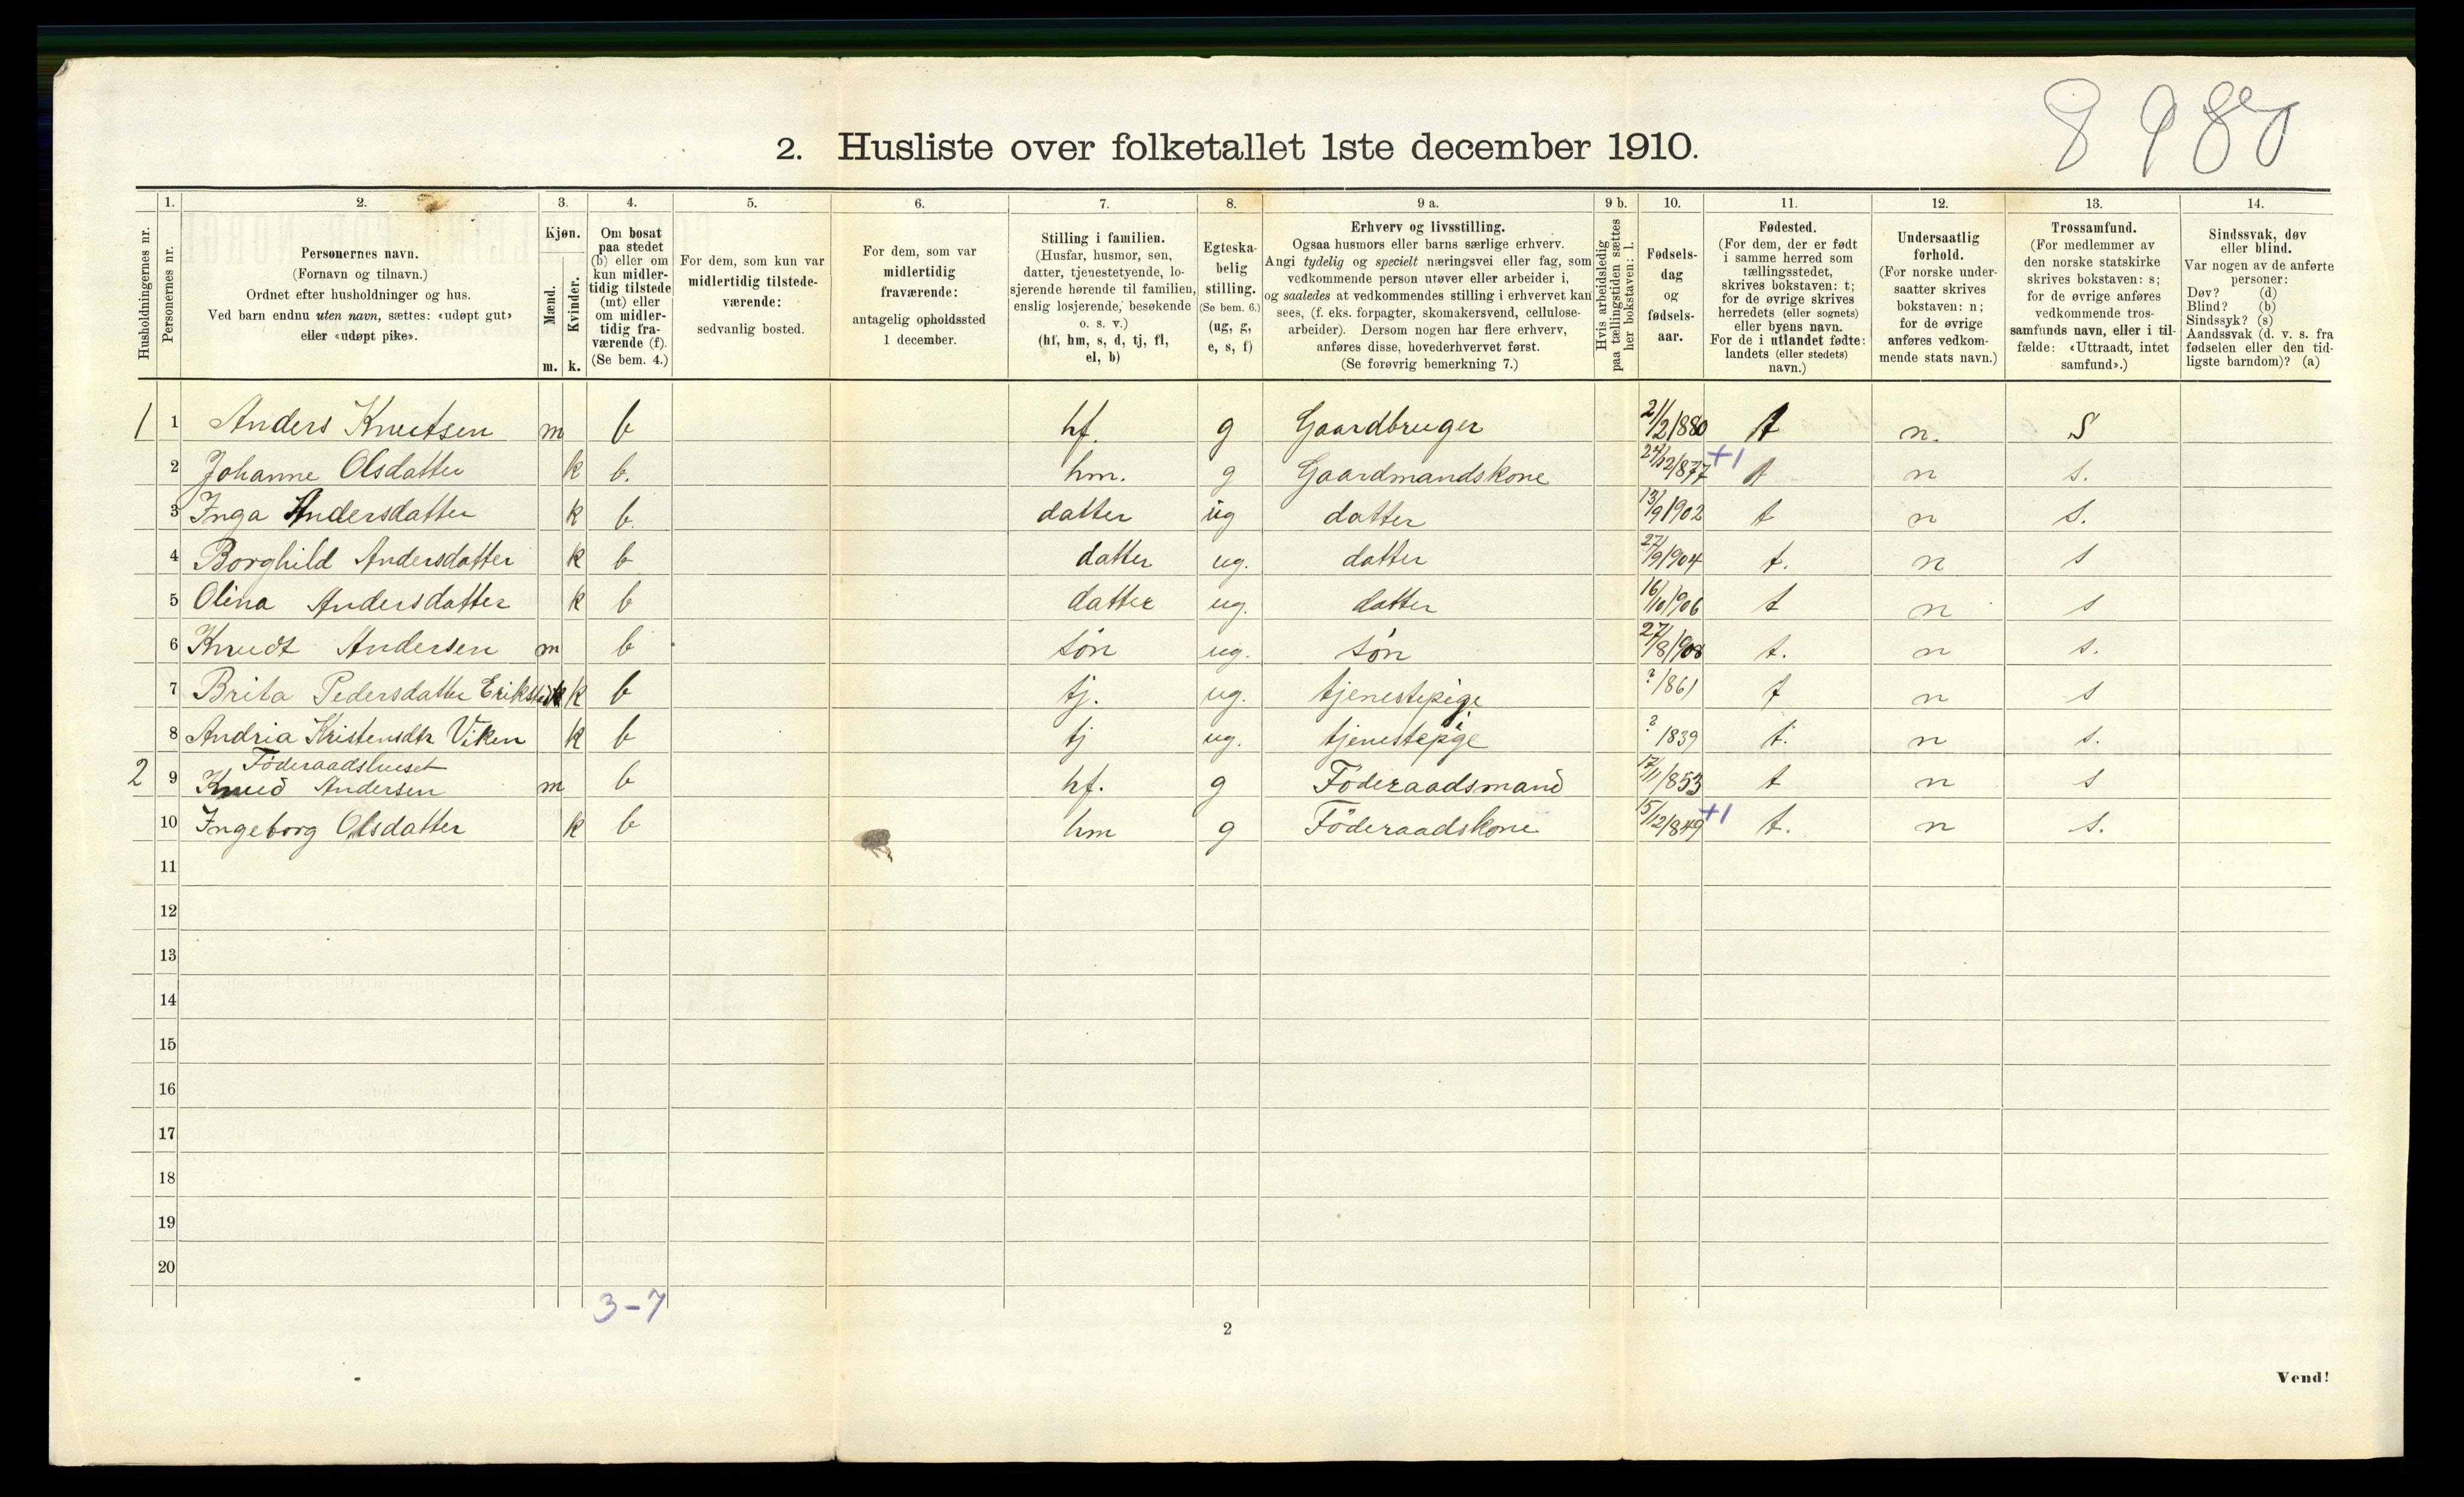 8 980
2. Husliste over folketallet 1ste december 1910.
1. 2. 3. 4. 5. 6. 7. 8. 9 a. 9 b. 10. 11. 12. 13. 14.
Husholdningernes nr.
Personernes nr.
Personernes navn.
(Fornavn og tilnavn.)
Ordnet efter husholdninger og hus.
Ved barn endnu uten navn, sættes: «udøpt gut»
eller «udøpt pike».
Kjøn.
Mænd.
Kvinder.
m. k.
Om bosat
paa stedet
(b) eller om
kun midler-
tidig tilstede
(mt) eller
om midler-
tidig fra-
værende (f).
(Se bem. 4.)
For dem, som kun var
midlertidig tilstede-
værende:
sedvanlig bosted.
For dem, som var
midlertidig
fraværende:
antagelig opholdssted
1 december.
Stilling i familien.
(Husfar, husmor, søn,
datter, tjenestetyende, lo-
sjerende hørende til familien,
enslig losjerende, besøkende
o. s. v.)
(hf, hm, s, d, tj, fl,
el, b)
Egteska-
belig
stilling.
(Se bem. 6.)
(ug, g,
e, s, f)
Erhverv og livsstilling.
Ogsaa husmors eller barns særlige erhverv.
Angi tydelig og specielt næringsvei eller fag, som
vedkommende person utøver eller arbeider i,
og saaledes at vedkommendes stilling i erhvervet kan
sees, (f. eks. forpagter, skomakersvend, cellulose-
arbeider). Dersom nogen har flere erhverv,
anføres disse, hovederhvervet først.
(Se forøvrig bemerkning 7.)
Hvis arbeidsledig
paa tællingstiden sættes
her bokstaven: l.
Fødsels-
dag
og
fødsels-
aar.
Fødested.
(For dem, der er født
i samme herred som
tællingsstedet,
skrives bokstaven: t;
for de øvrige skrives
herredets (eller sognets)
eller byens navn.
For de i utlandet fødte:
landets (eller stedets)
navn.)
Undersaatlig
forhold.
(For norske under-
saatter skrives
bokstaven: n;
for de øvrige
anføres vedkom-
mende stats navn.)
Trossamfund.
(For medlemmer av
den norske statskirke
skrives bokstaven: s;
for de øvrige anføres
vedkommende tros-
samfunds navn, eller i til-
fælde: «Uttraadt, intet
samfund».)
Sindssvak, døv
eller blind.
Var nogen av de anførte
personer:
Døv? (d)
Blind? (b)
Sindssyk? (s)
Aandssvak (d. v. s. fra
fødselen eller den tid-
ligste barndom)? (a)
1 1 Anders Knutsen m b hf. g Gaardbruger 21/2 1880 t n. S
2 Johanne Olsdatter k b. hm. g Gaardmandskone 24/12 1877 +1 t n s.
3 Inga Andersdatter k b. datter ug datter 13/9 1902 t n s.
4 Borghild Andersdatter k b datter ug. datter 27/9 1904 t. n s
5 Olina Andersdatter k b datter ug. datter 16/10 1906 t n s
6 Knudt Andersen m b søn ug. søn 27/8 1908 t. n s.
7 Brita Pedersdatter k b tj. ug. tjenestepige ? 1861 t n s
8 Andria Kristensdtr Viken k b tj ug. tjenestepige ? 1839 t. n s.
Föderaadshuset
2 9 Knud Andersen m b hf. g Föderaadsmand 17/11 1853 t n s
10 Ingeborg Olsdatter k b hm g Föderaadskone 15/12 1849 +1 t. n s.
11
12
13
14
15
16
17
18
19
20
3-7
2
Vend!